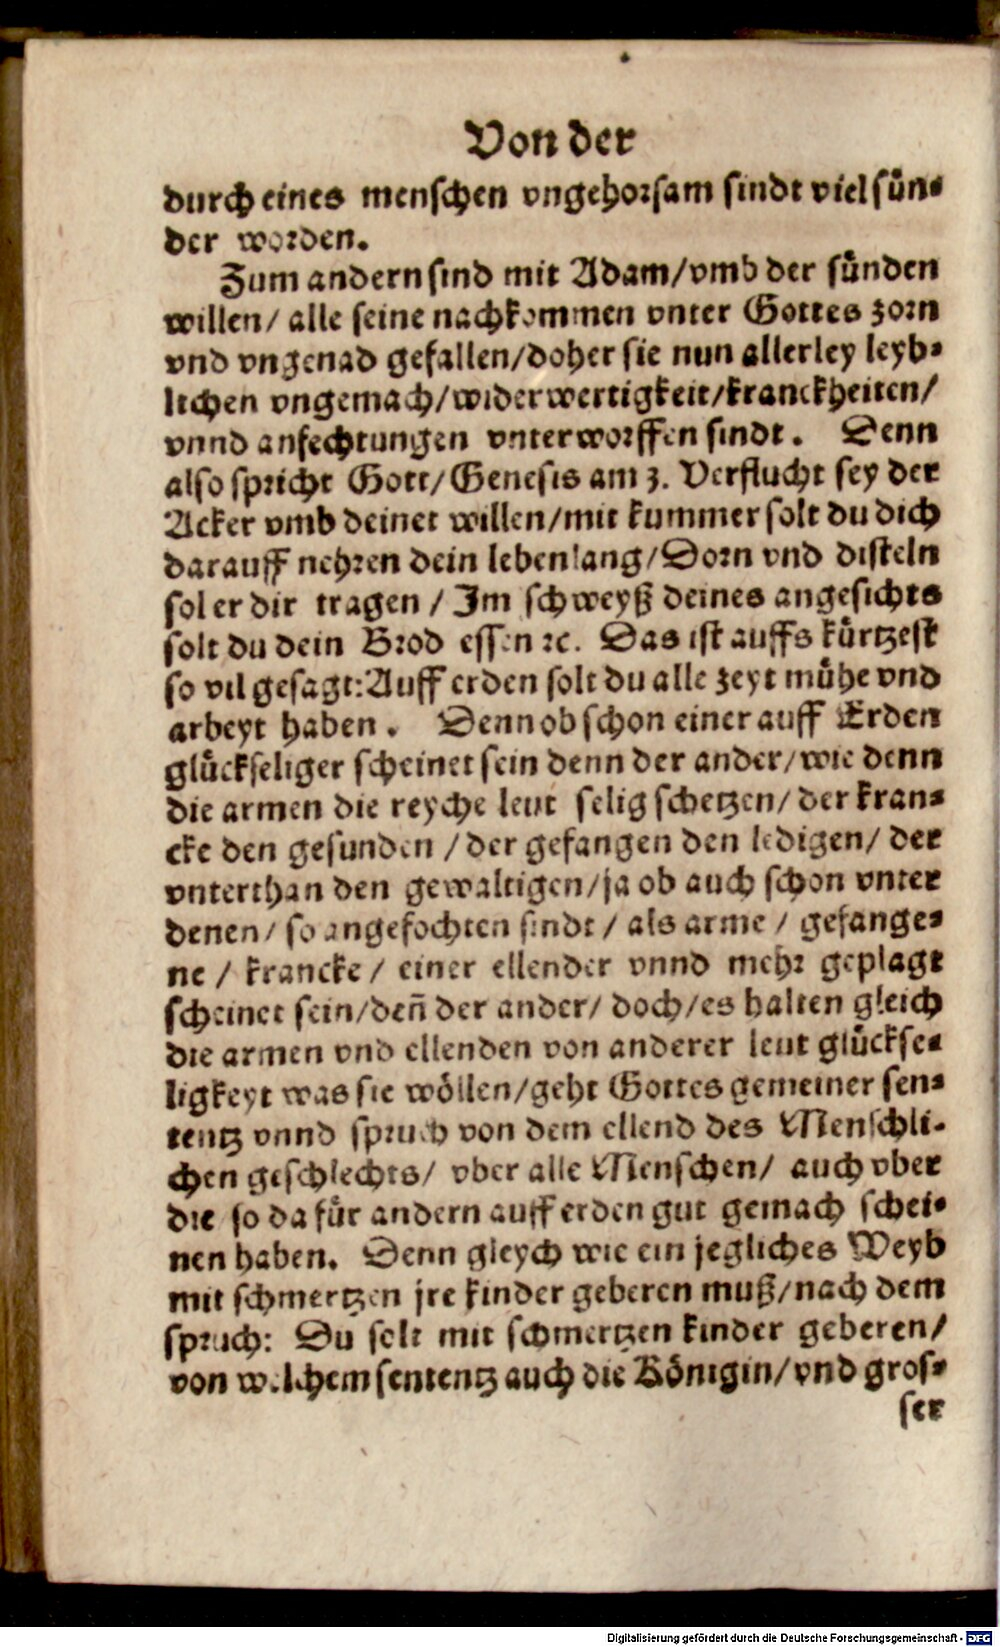 Von der
durch eines menschen vngehorsam sindt viel sün⸗
der worden.
Zum andern sind mit Adam/vmb der sünden
willen/ alle seine nachkommen vnter Gottes zorn
vnd vngenad gefallen/doher sie nun allerley leyb⸗
lichen vngemach/widerwertigkeit/kranckheiten/
vnnd anfechtungen vnterworffen sindt. Denn
also spricht Gott/ Genesis am 3. Verflucht sey der
Acker vmb deinet willen/mit kummer solt du dich
darauff nehren dein lebenlang/Dorn vnd disteln
sol er dir tragen / Im schweyß deines angesichts
solt du dein Brod essen ꝛc. Das ist auffs kürtzest
so vil gesagt: Auff erden solt du alle zeyt mühe vnd
arbeyt haben. Denn ob schon einer auff Erden
glückseliger scheinet sein denn der ander/wie denn
die armen die reyche leut selig schetzen/ der kran⸗
cke den gesunden / der gefangen den ledigen/ der
vnterthan den gewaltigen/ja ob auch schon vnter
denen/ so angefochten sindt / als arme / gefange⸗
ne / krancke / einer ellender vnnd mehr geplagt
scheinet sein/deñ der ander/ doch/es halten gleich
die armen vnd ellenden von anderer leut glückse⸗
ligkeyt was sie wöllen/geht Gottes gemeiner sen⸗
tentz vnnd spruch von dem ellend des Menschli⸗
chen geschlechts/ vber alle Menschen/ auch vber
die so da für andern auff erden gut gemach schei⸗
nen haben. Denn gleych wie ein jegliches Weyb
mit schmertzen jre kinder geberen muß/nach dem
spruch: Du solt mit schmertzen kinder geberen/
von welchem sententz auch die Königin/vnd gros⸗
ser
Digitalisierung gefördert durch die Deutsche Forschungsgemeinschaft - DFG